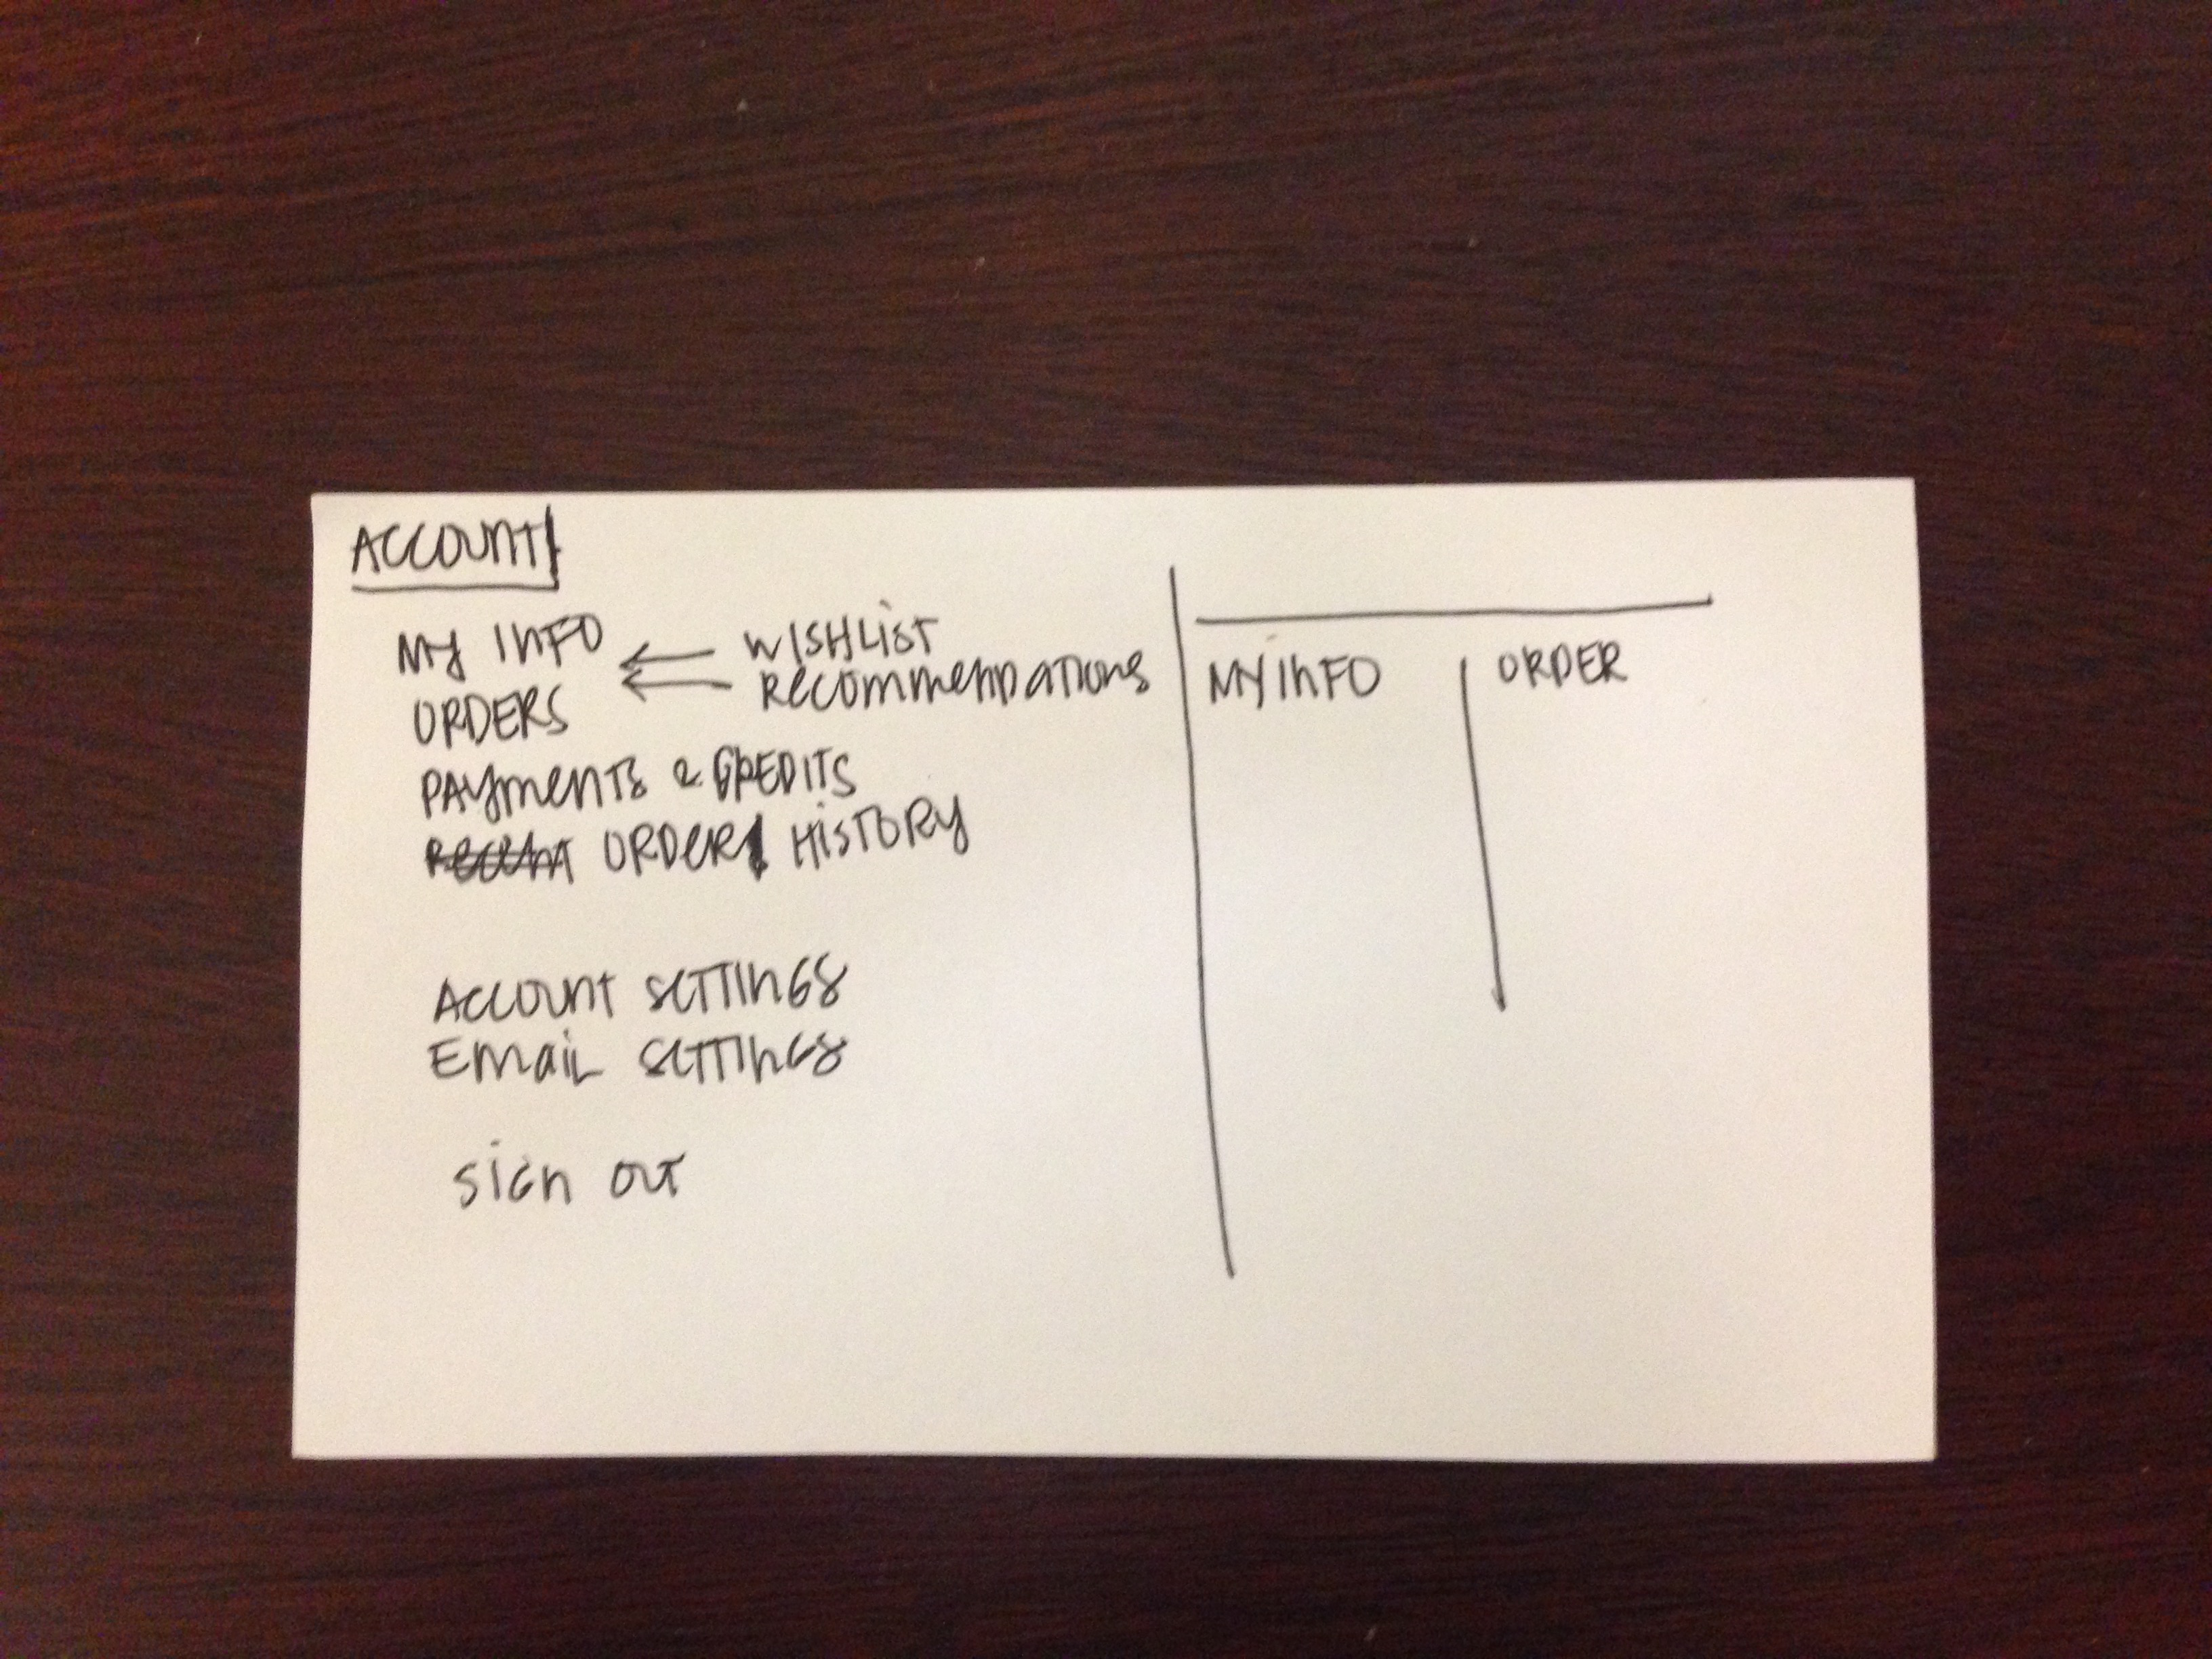 ACCOUNT
MY INFO
WISHLIST
RECOMMENDATIONS
ORDERS
PAYMENTS & CREDITS
RECENT ORDER HISTORY
ACCOUNT SETTINGS
EMAIL SETTINGS
SIGN OUT
MY INFO
ORDER